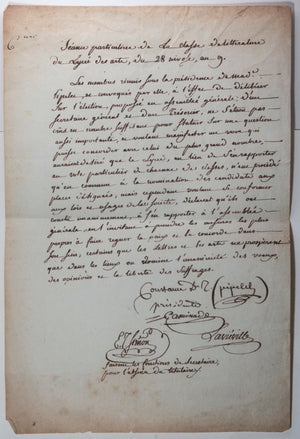 Séance particulière de La classe de littérature
du Lycée des arts, du 28 nivose, an 9.
Les membres réunis sous la présidence de Mad.e
Pipelet, se convoqués par elle, à l'effet de délibérer
sur l'élection, proposée en assemblée générale, d'un
Secrétaire général et d'un Trésorier, ne s'étant pas
en nombre suffisant pour statuer sur une question
aussi importante, et voulant manifester un vœu qui
puisse concorder avec celui du plus grand nombre,
auraient désiré que le Lycée, au lieu de s'en rapporter
au vote particulier de chacune des classes, n'eut procédé
qu'en commun à la nomination des candidats aux
places désignées, mais cependant voulant se conformer
aux lois et usages de la société, déclarent qu'ils ont
arrêté unanimement, de s'en rapporter à l'assemblée
générale en l'invitant à prendre les mesures les plus
propres à faire regner la paix et la concorde dans
son sein, certains que les lettres et les arts ne prospèrent
que dans les lieux où domine l'unanimité des vœux,
des opinions et la liberté des suffrages.
Constance D. T. Pipelet
présidente
Caminade
Ch. Simon
Larriville
faisant les fonctions de Secrétaire,
pour l'absence du titulaire.